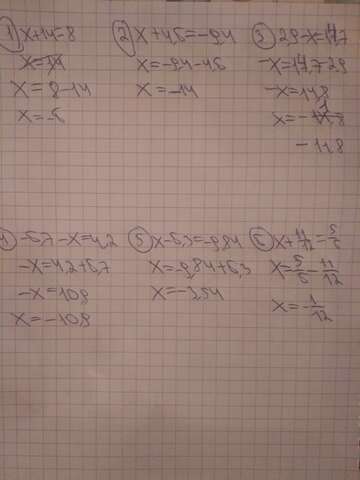 1 x+14=8
x=14
x=8-14
x=-6
2 x+4,6=-9,4
x=-9,4-4,6
x=-14
3 2,9-x=14,7
-x=14,7-2,9
-x=11,8
-11,8
4 -6,7-x=4,2
-x=4,2+6,7
-x=10,9
x=-10,9
5 x-6,3=-9,84
x=-9,84+6,3
x=-3,54
6 x+11/12=5/6
x=5/6-11/12
x=-1/12